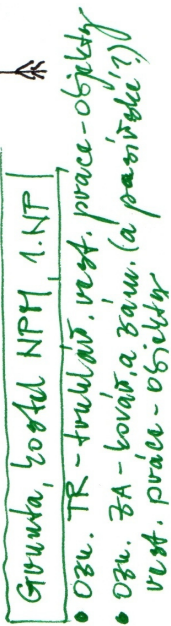 Grunta, kostel NPM, 1.NP
• Ozn. TR - truhlářs. rest. práce - objekty
• Ozn. ZA - kovář. a zám. (a pasířské?)
rest. práce - objekty